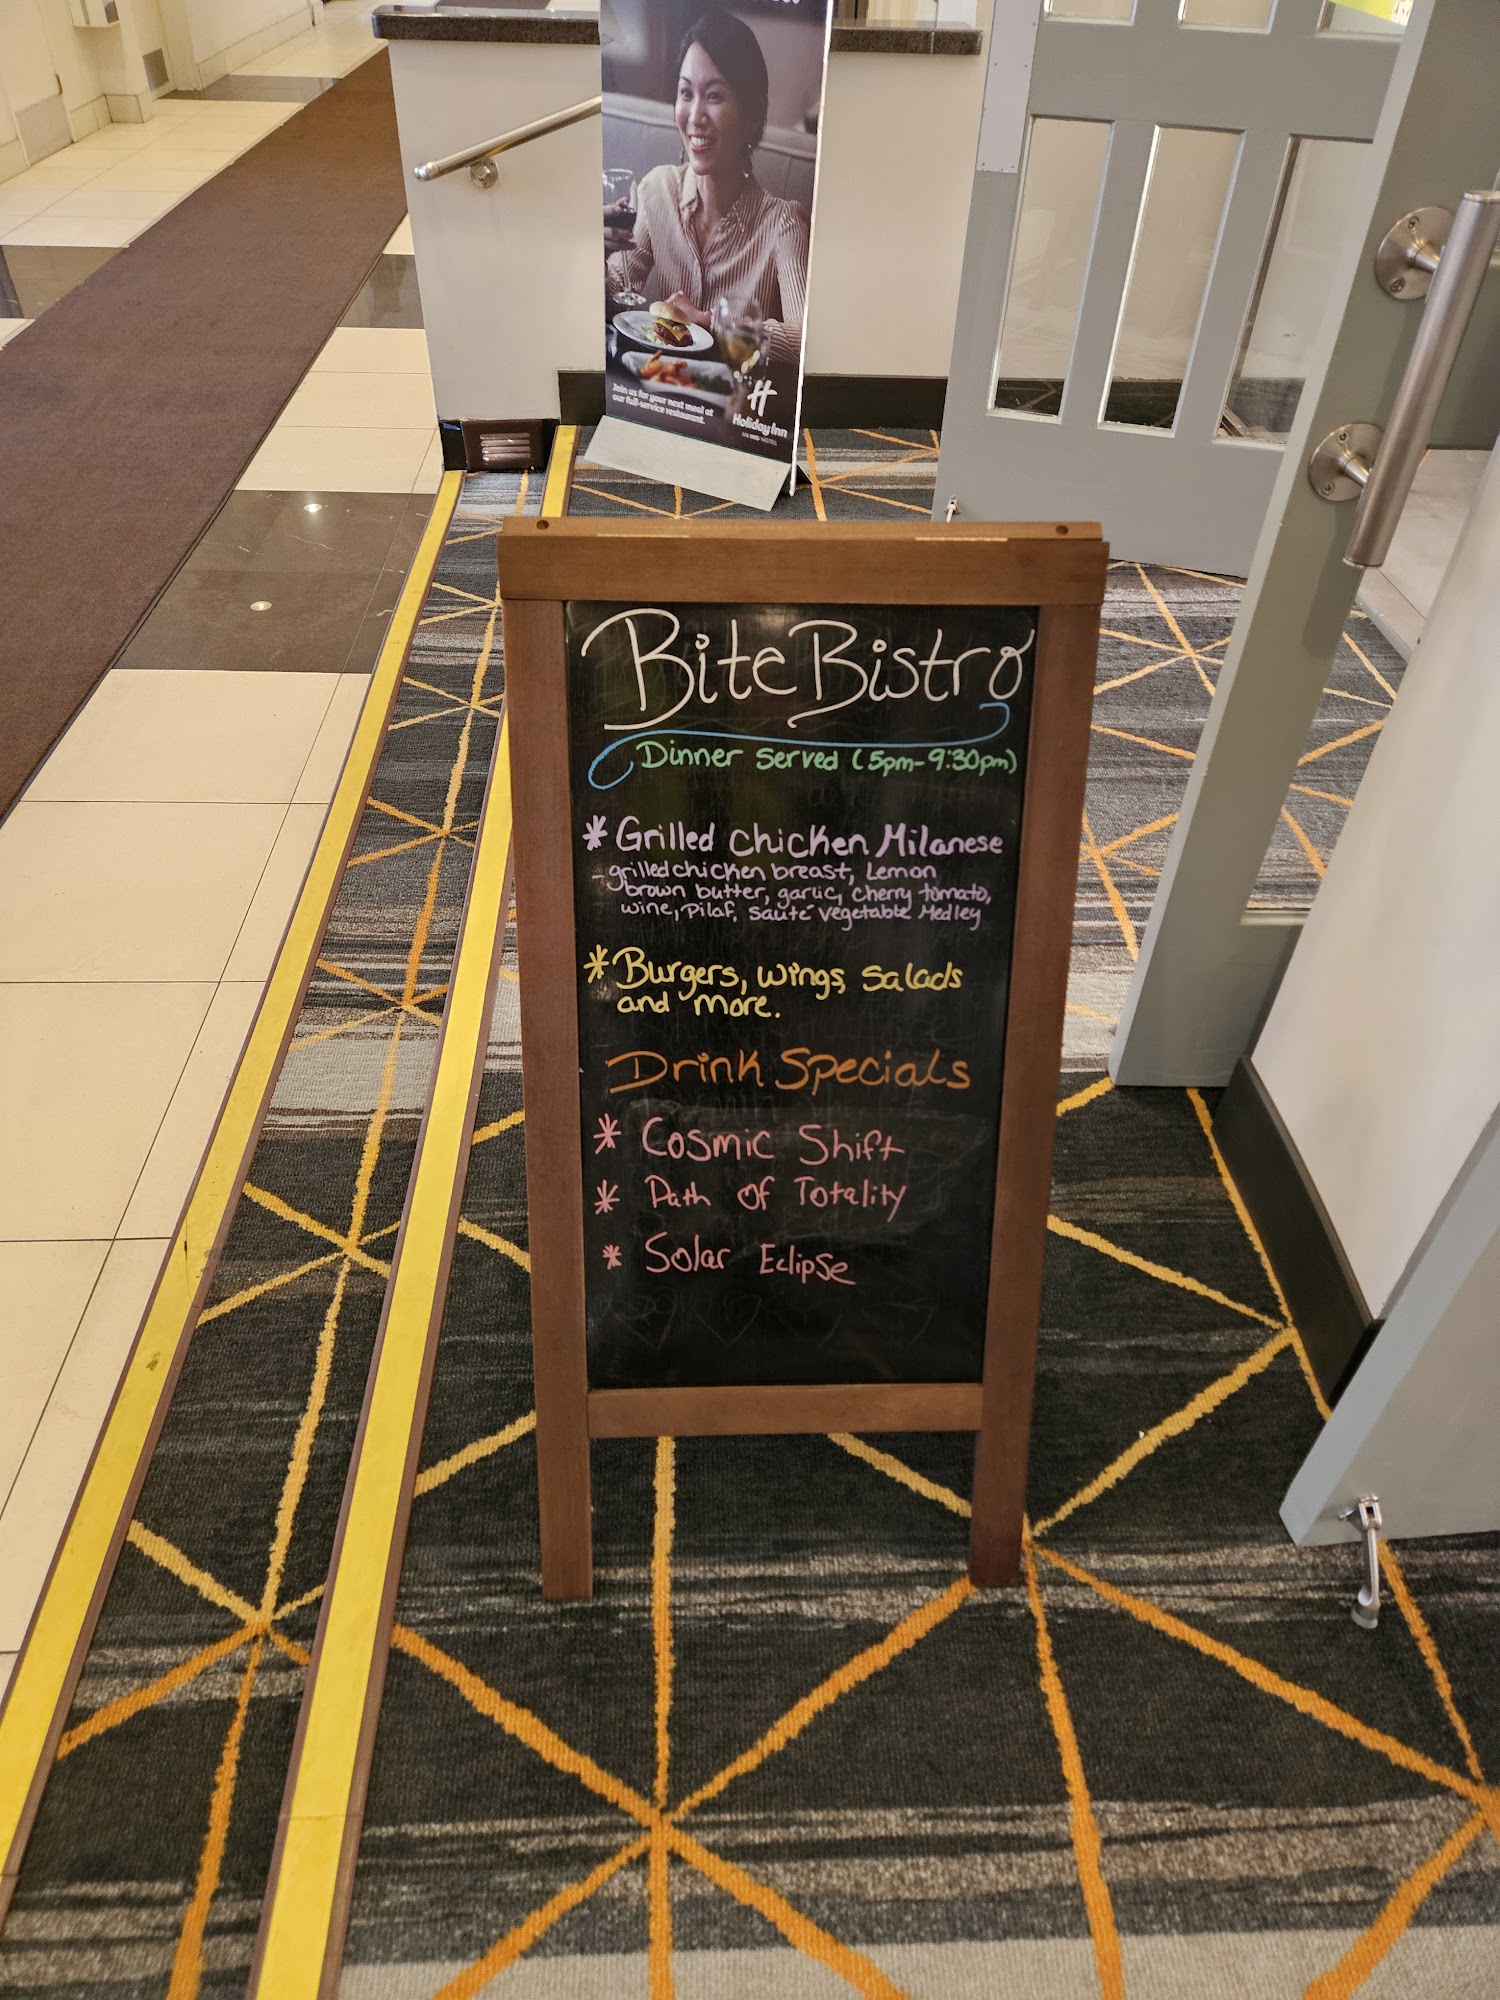 Join us for your next meal at
our full-service restaurant.
H
Holiday Inn
AN IHG HOTEL
Bite Bistro
Dinner Served (5pm-9:30pm)
* Grilled Chicken Milanese
- grilled chicken breast, Lemon
brown butter, garlic, cherry tomato,
wine, Pilaf, sauté vegetable Medley
* Burgers, wings, salads
and more.
Drink Specials
* Cosmic Shift
* Path of Totality
* Solar Eclipse